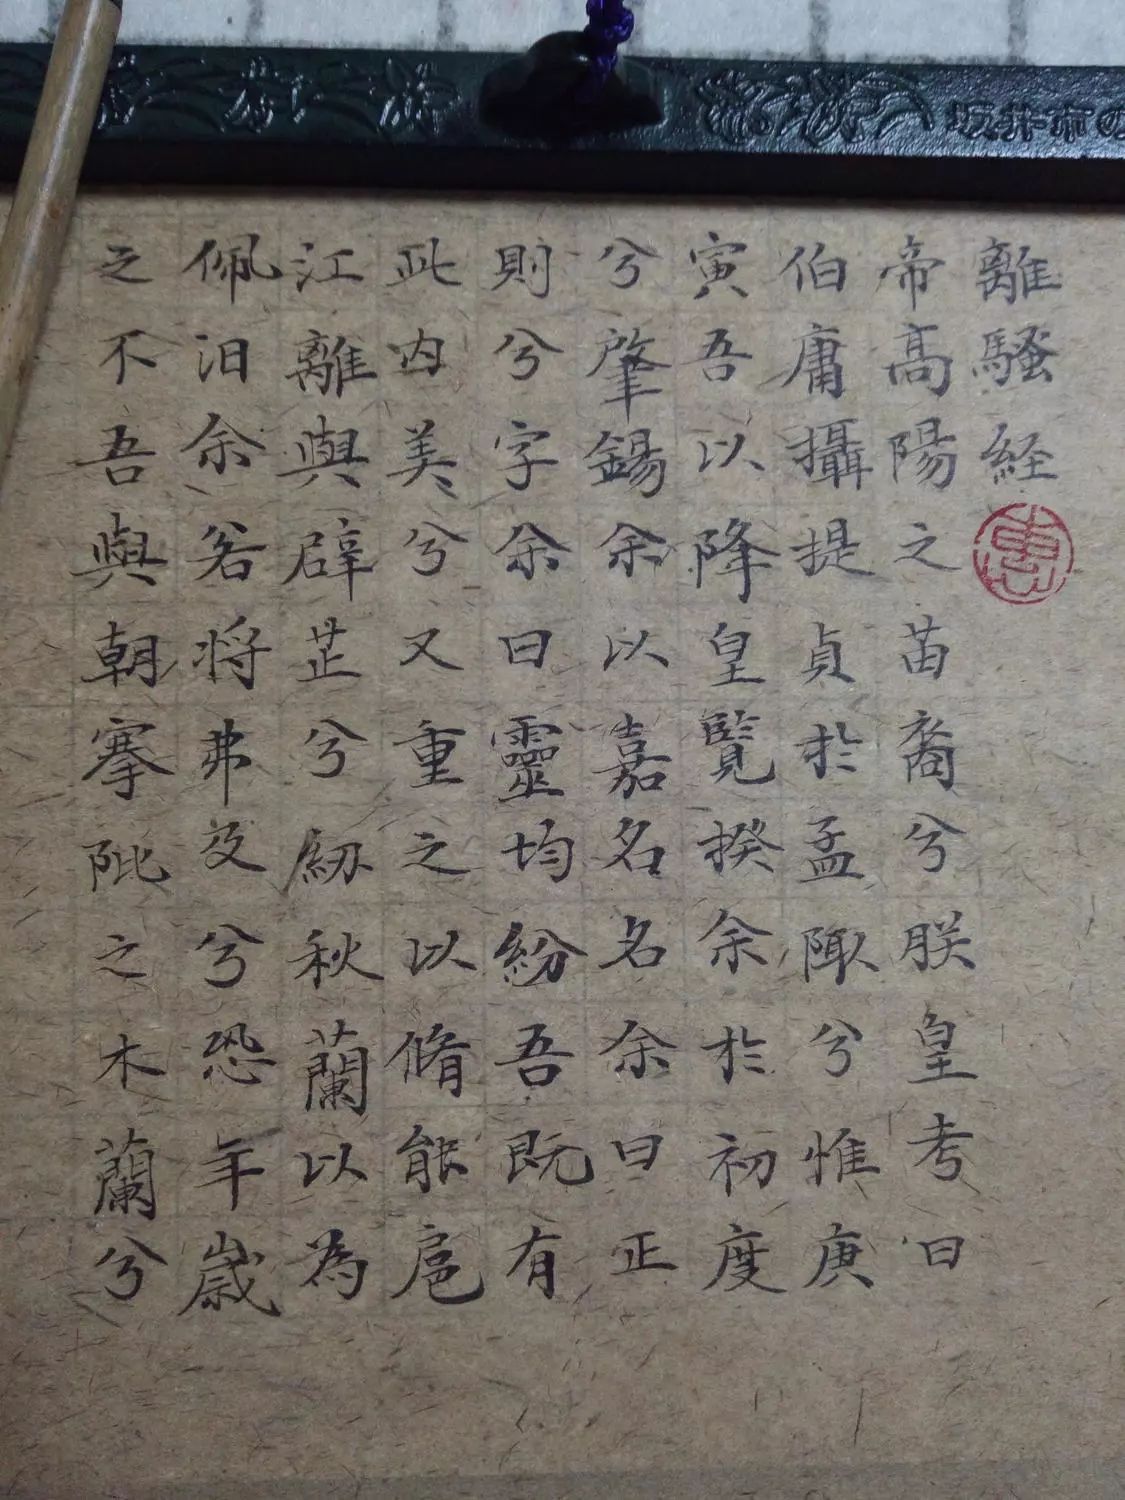 坂井市の
離騷経
帝高陽之苗裔兮朕皇考曰
伯庸攝提貞於孟陬兮惟庚
寅吾以降皇覽揆余於初度
兮肇錫余以嘉名名余曰正
則兮字余曰靈均紛吾既有
此内美兮又重之以脩能扈
江離與辟芷兮紉秋蘭以為
佩汨余若將弗及兮恐年歲
之不吾與朝搴阰之木蘭兮